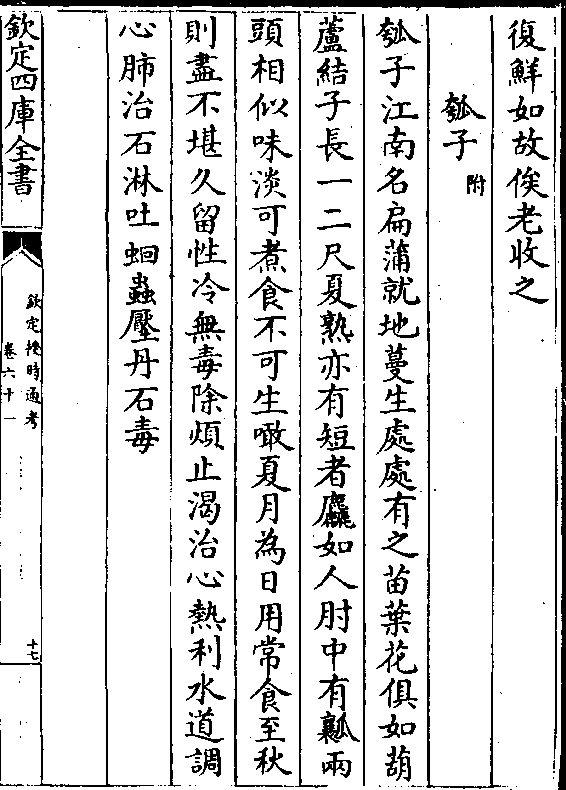 復鮮如故俟老收之
瓠子附
瓠子江南名扁蒲就地蔓生處處有之苗葉花俱如葫
蘆結子長一二尺夏熟亦有短者麤如人肘中有瓤兩
頭相似味淡可煮食不可生噉夏月為日用常食至秋
則盡不堪久留性冷無毒除煩止渴治心熱利水道調
心肺治石淋吐蛔蟲壓丹石毒
欽定四庫全書
欽定授時通考
卷六十一
十七